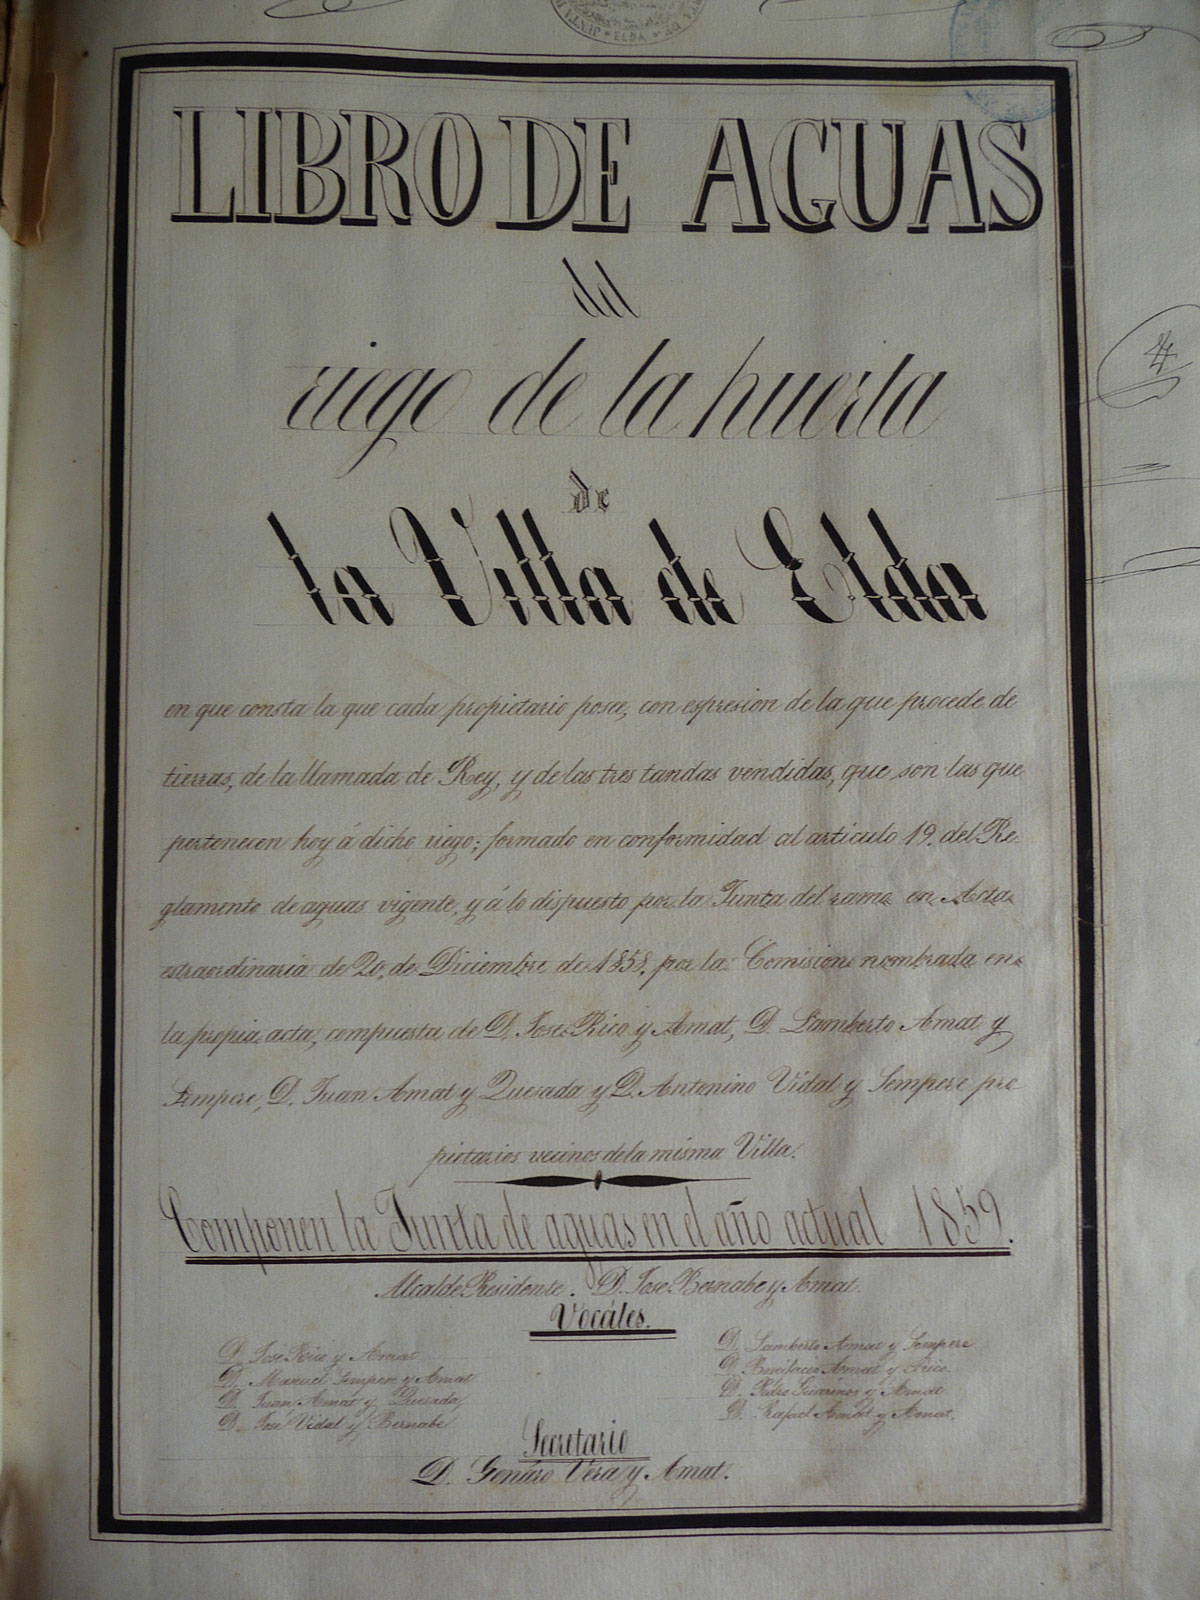 ELDA
LIBRO DE AGUAS
del
riego de la huerta
de
la Villa de Elda
en que consta la que cada propietario posee, con espresion de la que procede de
tierras, de la llamada de Rey, y de las tres tandas vendidas, que son las que
pertenecen hoy á dicho riego; formado en conformidad al articulo 19. del Re-
glamento de aguas vigente, y á lo dispuesto por la Junta del ramo en Acta
estraordinaria de 20. de Diciembre de 1858. por la Comision nombrada en
la propia acta, compuesta de D. Jose Rico y Amat, D. Lamberto Amat y
Sempere, D. Juan Amat y Quesada y D. Antonino Vidal y Sempere pro
pietarios vecinos de la misma Villa.
Componen la Junta de aguas en el año actual 1859.
Alcalde Presidente. D. Jose Bernabe y Amat.
Vocáles.
D. Jose Rico y Amat
D. Manuel Sempere y Amat
D. Juan Amat y Quesada
D. José Vidal y Bernabe
D. Lamberto Amat y Sempere
D. Bonifacio Amat y Rico.
D. Pedro Guarinos y Amat
D. Rafael Amat y Amat.
Secretario
D. Genáro Vera y Amat.